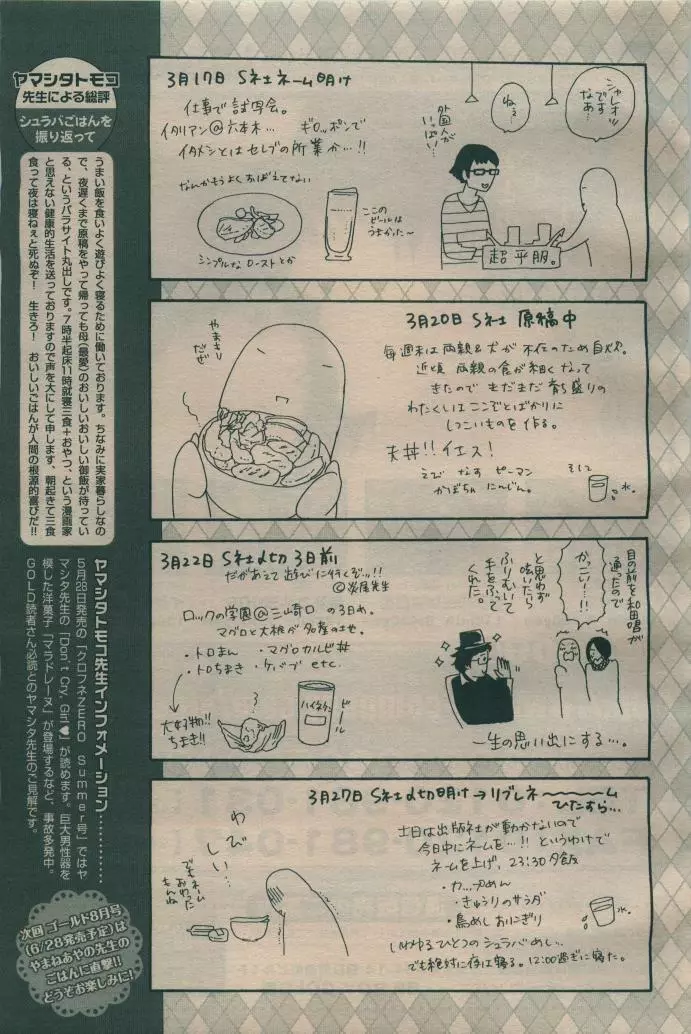 3月17日 S社ネーム明け
仕事で試写会。
イタリアン@六本木… ギロッポンで
イタメシとはセレブの所業か…!!
なんかもうよくおぼえてない
シンプルなローストとか
ここの
ビールは
うまかった〜
外国人が
いっぱい…
ねぇ…
シャレオツ
ですなあ
超平服。
3月20日 S社 原稿中
毎週末は両親&犬が不在のため自炊。
近頃 両親の食が細くなって
きたので まだまだ育ち盛りの
わたくしはここぞとばかりに
しつこいものを作る。
天丼!!イエス!
えび なす ピーマン
かぼちゃ にんじん。
そして
水。
やまもり
だぜ
3月22日 S社〆切 3日前
だがあえて遊びに行くぞ…!!
ロックの学園@三崎口の3日め。
マグロと大根が名産の土地。
・トロまん ・マグロカルビ丼
・トロちまき ・ケバブ etc.
大好物!!
ちまき!!
ハイネケン
ビール
目の前を和田唱が
通ったので
かっこいー…!!
と思わず
呟いたら
ふりむいて
手をふって
くれた。
一生の思い出にする…。
3月27日 S社〆切明け→リブレネ〜〜〜〜ム
ひたすら…
土日は出版社が動かないので
今日中にネームを…!! というわけで
ネームを上げ、23:30夕飯
・カップめん
・きゅうりのサラダ
・鳥めしおにぎり
水。
いわゆるひとつのシュラバめし…
でも絶対に夜は寝る。12:00過ぎに寝た。
わびしい…
でもネーム
おわった
もんね
ヤマシタトモコ
先生による総評
シュラバごはんを
振り返って
うまい飯を食いよく遊びよく寝るために働いております。ちなみに実家暮らしなの
で、夜遅くまで原稿をやって帰っても母(最愛)のおいしいおいしい御飯が待ってい
る、というパラサイト丸出しです。7時半起床11時就寝三食+おやつ、という漫画家
と思えない健康的生活を送っておりますので声を大にして申します、朝起きて三食
食って夜は寝ねぇと死ぬぞ! 生きろ! おいしいごはんが人間の根源的喜びだ!!
ヤマシタトモコ先生インフォメーション…………
5月28日発売の「クロフネZERO Summer号」ではヤ
マシタ先生の「Don't Cry, Girl♥」が読めます。巨大男性器を
模した洋菓子「マラドレーヌ」が登場するなど、事故多発中。
GOLD読者さん必読とのヤマシタ先生のご見解です。
次回 ゴールド8月号
(6/28発売予定)は
やまねあやの先生の
ごはんに直撃!!
どうぞお楽しみに!